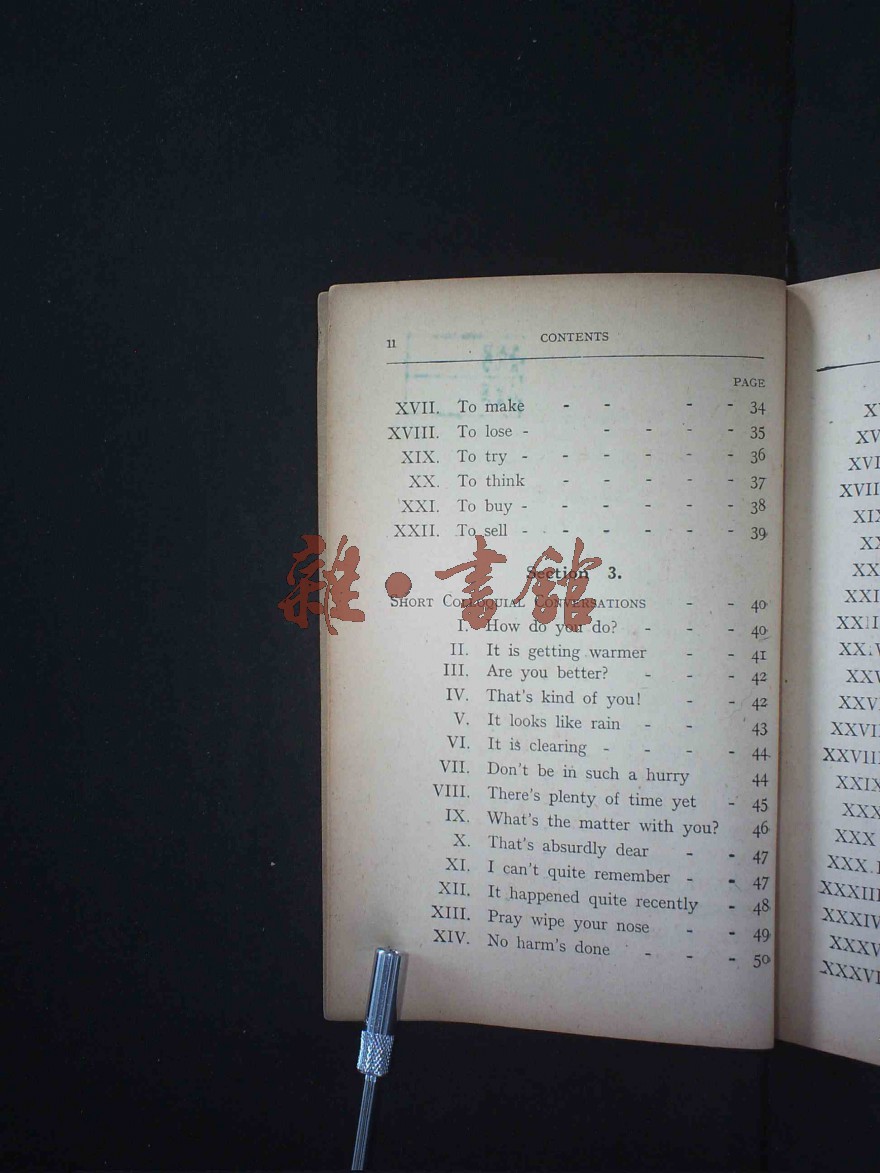 11 CONTENTS
PAGE
XVII. To make - - - - 34
XVIII. To lose - - - - - 35
XIX. To try - - - - - - 36
XX. To think - - - - - 37
XXI. To buy - - - - - - 38
XXII. To sell - - - - - - 39
Section 3.
SHORT COLLOQUIAL CONVERSATIONS - - 40
I. How do you do? - - - 40
II. It is getting warmer - - 41
III. Are you better? - - - 42
IV. That's kind of you! - - 42
V. It looks like rain - - 43
VI. It is clearing - - - - 44
VII. Don't be in such a hurry 44
VIII. There's plenty of time yet - 45
IX. What's the matter with you? 46
X. That's absurdly dear - - 47
XI. I can't quite remember - - 47
XII. It happened quite recently - 48
XIII. Pray wipe your nose - - 49
XIV. No harm's done - - - 50
雜·書館